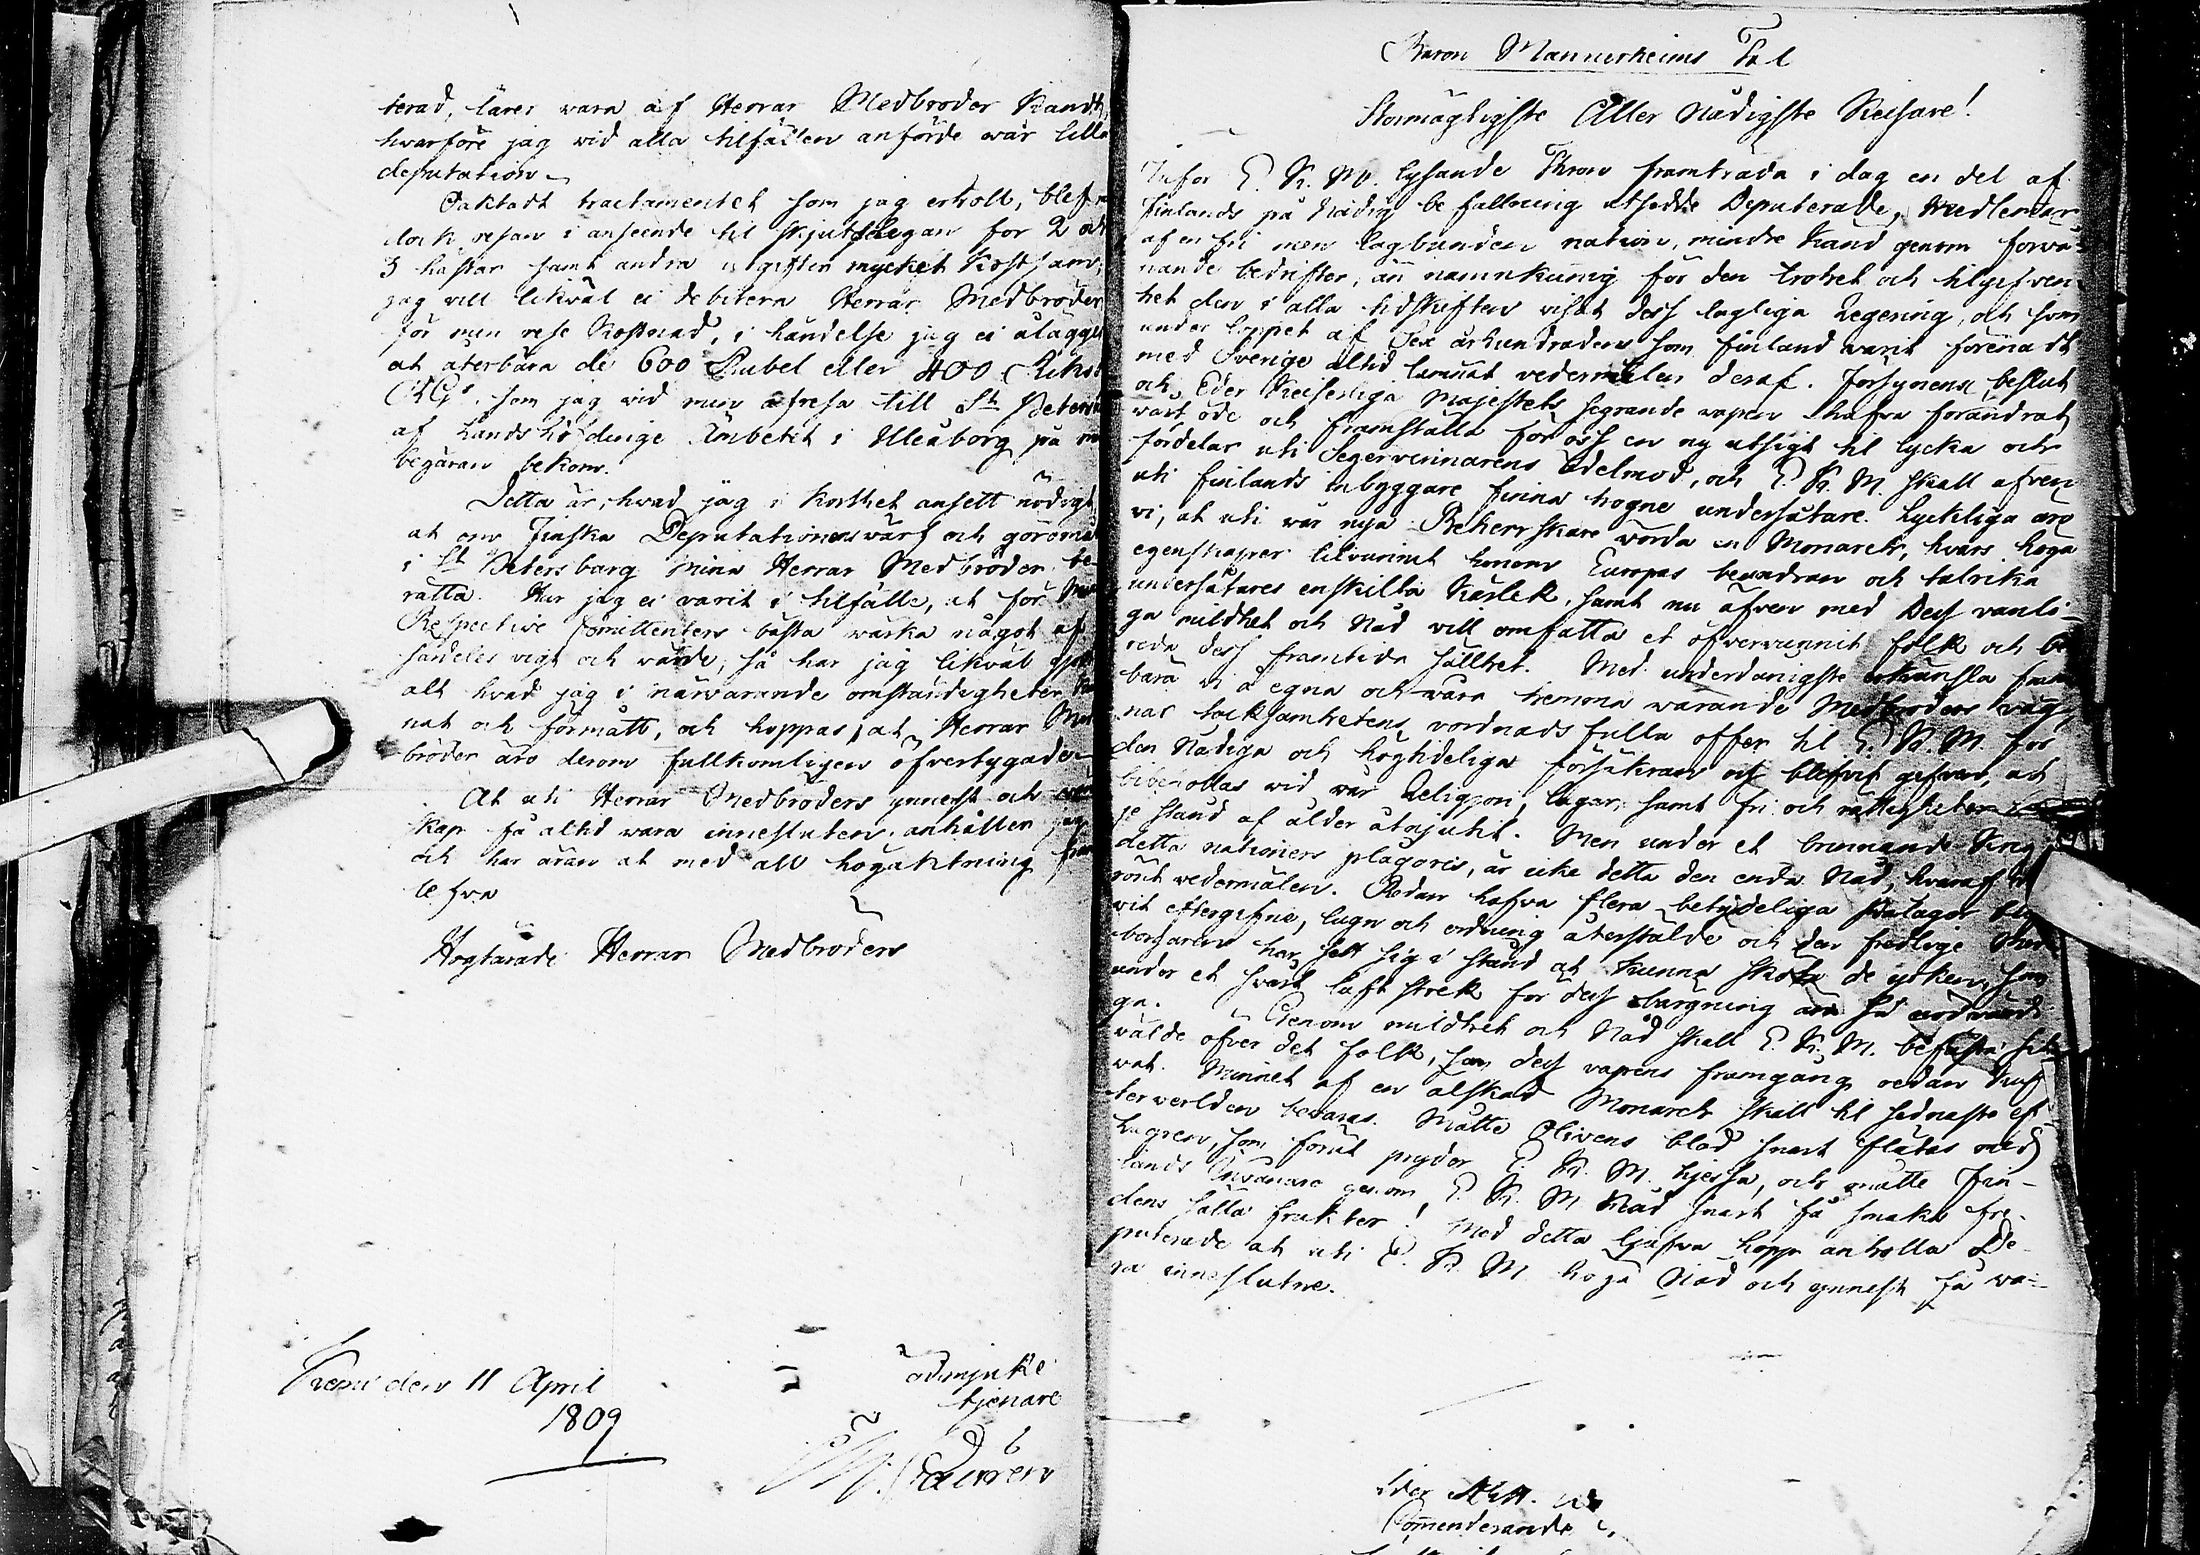 terad, lärer vara af Herrar Medbröder Kandt,
hvarföre jag vid alla tilfällen anförde vår lilla
deputation
Oaktadt tractamentet som jag erholt, blef
dock resan i anseende til skjutslegan for 2 och
3 hästar samt andra utgifter mycket Kostsam;
jag vill likväl ei debitera Herrar Medbröder
för min rese Kostnad, i händelse jag ei älägges
at återbära de 600 Rubel eller 400 Riksd
RGs. som jag vid min afresa till St Petersb
af Landshöfdinge Ämbetet i Uleåborg på
begäran bekom.
Detta är, hvad jag i korthet ansett nödigt
at om Finska Deputationens värf och göromål
i St Petersburg mina Herrar Medbröder be-
rätta. Har jag ei varit i tilfälle, at för
Respective Comittenters bästa värka något af
särdeles vigt och värde, så har jag likväl gjort
alt hvad jag i närvarande omständigheter kun
nat och förmått, och hoppas, at Herrar Med
bröder äro derom fullkomligen öfvertygade
At uti Herrar Medbröders ynnest och vän
skap få altid vara innesluten, anhåller jag
och har äran at med all högaktning fram
lefva
Högtärade Herrar Medbröders
ödmjuke
tjenare
Kemi den 11 April
1809
Lauren
Baron Mannerheims Tal
Stormägtigste Aller Nådigste Keisare!
Inför E. K. M. lysande Thron framträda i dag en del af
Finlands på Nådig befallning utsedde Deputerade, Medlemmar
af en fri men lagbunden nation, mindre Känd genom förvå-
nande bedrifter, än namnkunnig för den trohet och tilgifven-
het den i alla tidskiften visat dess lagliga Regering, och som
under loppet af Sex århundraden som Finland varit förenadt
med Sverige altid lemnat vedermälen deraf. Försynens beslut
och Eder Keiserliga Majestets segrande vapen hafva förändrat
vårt öde och framställa för oss en ny utsigt til lycka och
fördelar uti Segervinnarens Ädelmod, och E. K. M. skall afven
uti Finlands inbyggare finna trogne undersåtare. Lyckliga äro
vi, at uti vår nya Beherrskare vörda en Monarch, hvars höga
egenskaper tilvunnit honom Europas beundran och talrika
undersåtares enskilta Kärlek, samt nu äfven med Dess vanli-
ga mildhet och Nåd vill omfatta et öfvervunnit folk och be
reda dess framtida sällhet. Med underdånigste erkänsla fram
bära vi å egna och våra hemma varande Medbröders väg-
nar tacksamhetens vördnadsfulla offer til E. K. M. för
den Nådiga och högtideliga försäkran oss blifvit gefven, at
bibehollas vid vår Religion, lagar, samt fri och rättigheter
se stånd af ålder åtnjutit. Men under et brinnande Krig
detta nationers plågoris, är icke detta den enda Nåd, hvaraf vi
rönt vedermälen. Redan hafva flera betydeliga pålagor blif
vit eftergifne, lugn och ordning återstälde och den fredlige Med
borgaren har sett sig i stånd at kunna sköta de yrken, som
under et hårdt luftstrek för dess bärgning äro så nödvändi
ga. Genom mildhet och Nåd skall E. K. M. befästa sitt
välde öfver det folk, som dess vapens framgång redan Kuf
vat. Minnet af en älskad Monarch skall til sednaste ef-
terverlden bevaras. Måtte Olivens blad snart flätas vid
lagren, som förut pryder E. K. M. hjessa, och måtte Fin-
lands Invånare genom E. K. M Nåd snart få smaka fre-
dens sälla frukter! Med detta ljufva hopp anholla De-
puterade at uti E. K. M. höga Nåd och ynnest få va-
ra inneslutne.
Comenderande